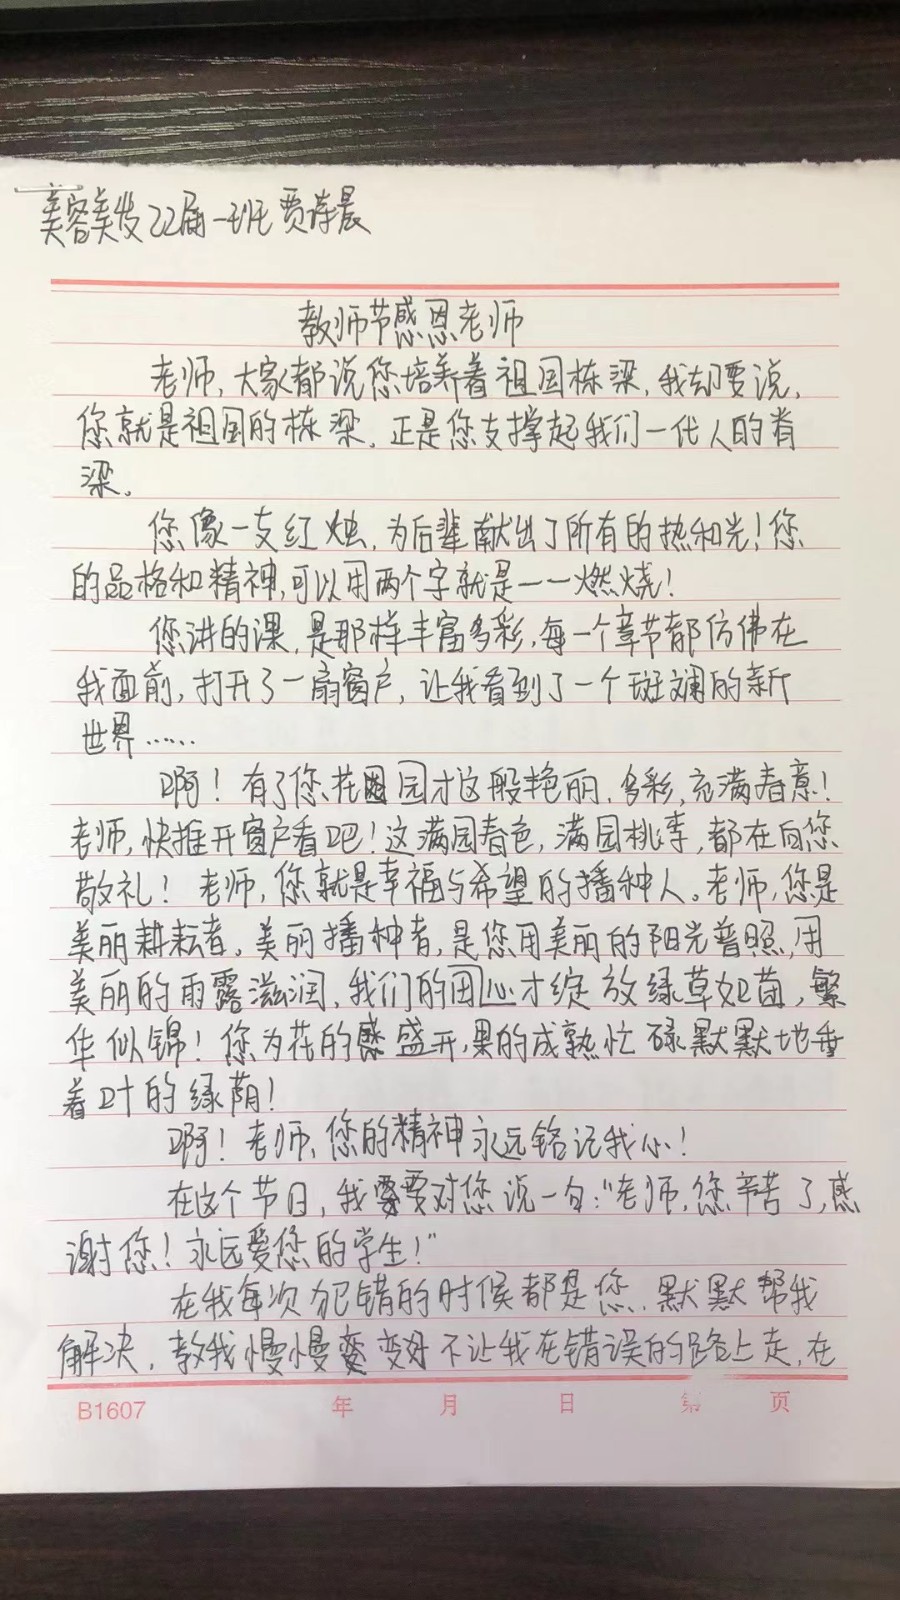 美容美发22届一班贾诗晨
教师节感恩老师
老师,大家都说您培养着祖国栋梁,我却要说,
您就是祖国的栋梁,正是您支撑起我们一代人的脊
梁。
您像一支红烛,为后辈献出了所有的热和光!您
的品格和精神,可以用两个字就是——燃烧!
您讲的课,是那样丰富多彩,每一个章节都仿佛在
我面前,打开了一扇窗户,让我看到了一个斑斓的新
世界……
啊!有了您花园才这般艳丽,多彩,充满春意!
老师,快推开窗户看吧!这满园春色,满园桃李,都在向您
敬礼!老师,您就是幸福与希望的播种人。老师,您是
美丽耕耘者。美丽播种者,是您用美丽的阳光普照,用
美丽的雨露滋润,我们的田心才绽放绿草如茵,繁
华似锦!您为花的盛开,果的成熟忙碌默默地垂
着叶的绿荫!
啊!老师,您的精神永远铭记我心!
在这个节日,我要对您说一句:“老师,您辛苦了,感
谢您!永远爱您的学生!”
在我每次犯错的时候都是您,默默帮我
解决,教我慢慢变好不让我在错误的路上走,在
B1607 年 月 日 第 页